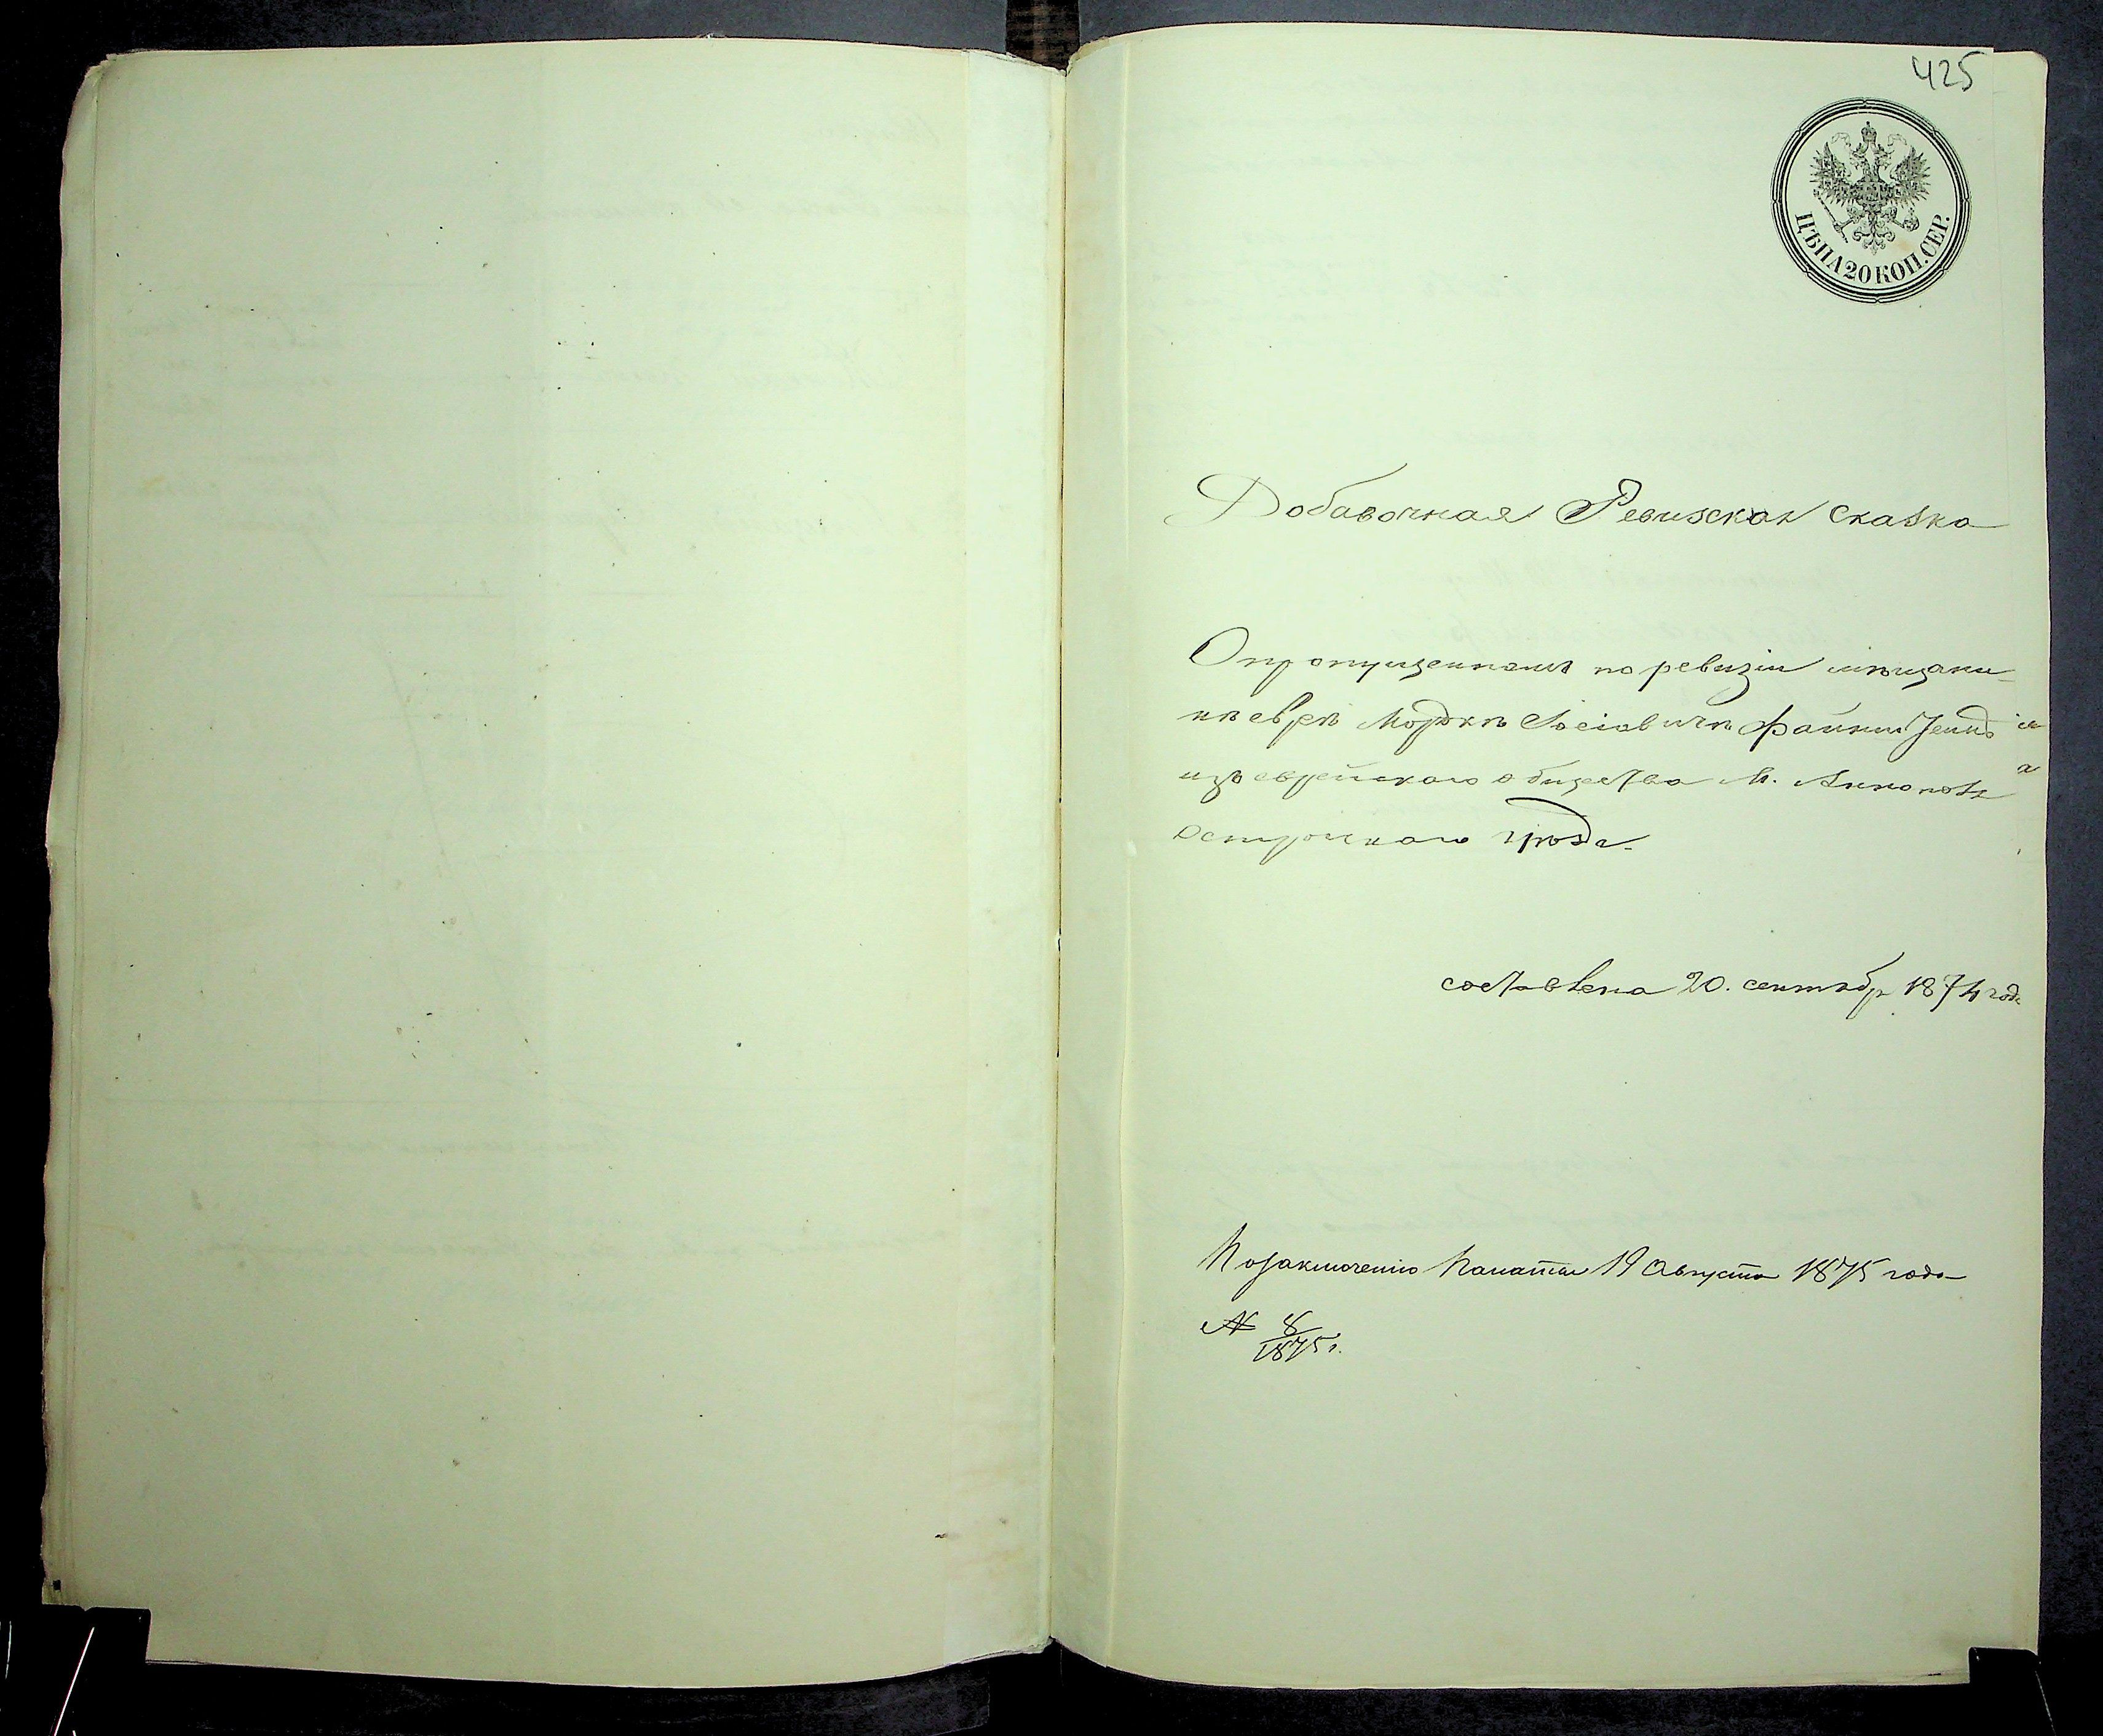 425
ЦѢНА 20 КОП. СЕР.
Добавочная Ревизская сказка
О пропущенномъ по ревизіи мѣщани-
нѣ еврѣ Моркѣ
изъ еврейскаго общества М. Аннополя
Острожскаго уѣзда.
составлена 20. сентябр 1874 года
По заключенію Палаты 19 Августа 1875 года
№ 8/1875 г.